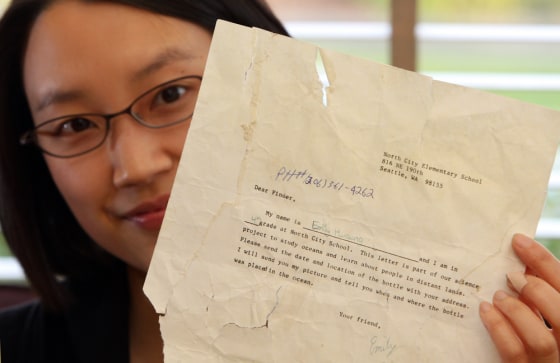 North City Elementary School
816 NE 190th
Seattle, WA 98155
PH# (206) 361-4262
Dear Finder,
My name is Emily and I am in
4th grade at North City School. This letter is part of our science
project to study oceans and learn about people in distant lands.
Please send the date and location of the bottle with your address.
I will send you my picture and tell you when and where the bottle
was placed in the ocean.
Your friend,
Emily